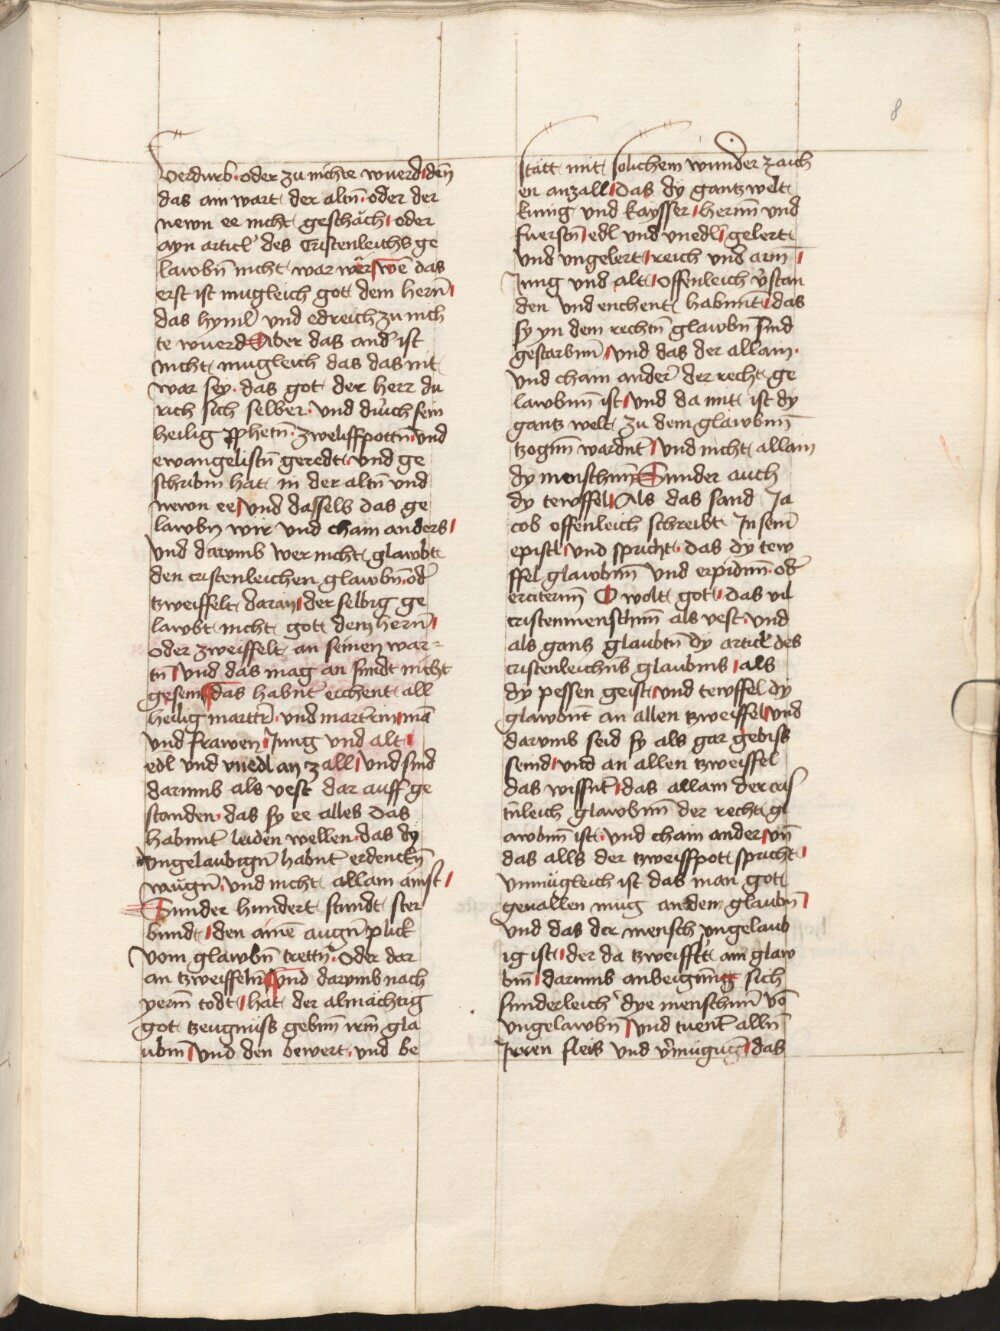 8
verdurb · oder zu nichte wuerd den̄
das am wart der altn̄ · oder der
newn ee nicht geschäch oder
ayn articl des Cristenleichs ge
lawbn̄ nicht war wër wē das
erst ist mugleich got dem hern̄
das hyml und edreich zu nich
te wuerd Aber das and' ist
nicht mugleich das das nit
war sey · das got der herr du
rich sich selber · und durich sein
heilig ꝓphetn̄ · zweliffpottn̄ und
ewangelistn̄ geredt · und ge
schribm̄ hat in der altn̄ und
newn ee und dasselb das ge
lawbn̄ wir und cham anders
und darumb wer nicht glawbt
den cristenleichen glawbn̄ · od'
tzweiffelt daran der selbig ge
lawbt nicht got dem hern̄
oder zweiffelt an seinen war-
tn̄ und das mag an sundt nicht
gesein das habnt erchent all
heilig martrer · und martrerin̄ man
und frawen Jung und alt
edl und vnedl an zall und sind
darumb als vest dar auff ge
standen · das sy ee alles das
habnnt leiden wellen · das dy
vngelaubign̄ habnt erdenckn̄
mügn̄ · und nicht allain ainst
Sunder hundert stundt ster
bundt den aine augn̄ plick
vom glawbn̄ trettn̄ · oder dar
an tzweiffeln̄ und darumb nach
yerm todt hat der almächtig
got tzeugnuss gebm̄ irm̄ gla
ubm̄ und den bewert · und be
stätt mit solichem wunder zaich
en anzall das dy gantz welt
kunig und kaysser herrn̄ und
fuerstn̄ edl und vnedl gelert
und vngelert reich und arm̄
Jung und alt offenleich v'stan
den und erchent habnnt das
sy yn dem rechtn̄ glawbn̄ sind
gestarbm̄ und das der allain ·
und cham ander der recht ge
lawbm̄ ist und da mit ist dy
gantz welt zu dem glawbm̄
tzogm̄ wardn̄ und nicht allain
dy menschm̄ Sunder auch
dy tewffel Als das sand Ja
cob offenleich schreibt Jn sein̄
epistl und spricht · das dy tew
ffel glawbm̄ und erpidm̄ · od'
ercitterm̄ O wolt got das vil
cristenmenschm̄ als vest · und
als gans glaubtn̄ dy articl des
cristenleichns glaubms als
dy pessen geist und tewffel dy
glawbnt an allen tzweiffel und
darumb seid sy als gar gebiss
seind und an allen tzweiffel
das wissnt das allain der cris
tnleich glawbm̄ der recht gl
awbm̄ ist · und cham ander vn̄
das alls der tzweiffpott spricht
Vnmügleich ist das man got
geuallen mug an dem glaubn̄
und das der mensch vngelaub
ig ist der da tzweifflt am glaw
bm̄ darumb anbeigung sich
sunderleich dye menschm̄ vō
vngelawbn̄ und tuent alln̄
Jrren fleis und v'mügung das